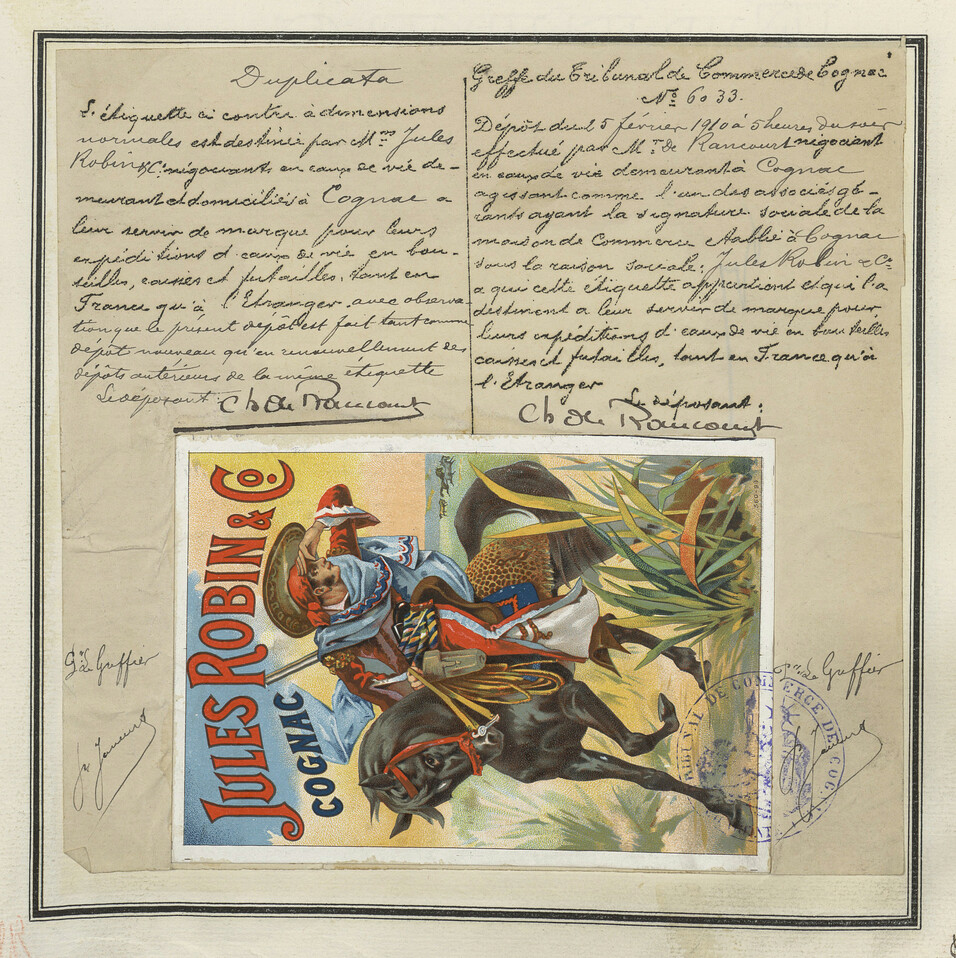 Duplicata
L'étiquette ci contre à dimensions
normales est destinée par Mrs Jules
Robin & Co négociants en eaux de vie de-
meurant et domiciliés à Cognac a
leur servir de marque pour leurs
expéditions d'eaux de vie en bou-
teilles, caisses et futailles, tant en
France qu'à l'Etranger avec observa-
tion que le présent dépôt est fait tant comme
dépôt nouveau qu'en renouvellement des
dépôts antérieurs de la même étiquette
Le déposant: Ch de Rancourt
Greffe du Tribunal de Commerce de Cognac
No 6033.
Dépôt du 25 février 1910 à 5 heures du soir
effectué par Mr de Rancourt négociant
en eaux de vie demeurant à Cognac
agissant comme l'un des associés gé-
rants ayant la signature sociale de la
maison de Commerce établie à Cognac
sous la raison sociale: Jules Robin & Co
a qui cette étiquette appartient et qui l'a
destinent a leur servir de marque pour
leurs expéditions d'eaux de vie en bouteilles
caisses et futailles, tant en France qu'à
l'Etranger
Le déposant:
Ch de Rancourt
JULES ROBIN & Co
COGNAC
Le Greffier
Le Greffier
TRIBUNAL DE COMMERCE DE COGNAC